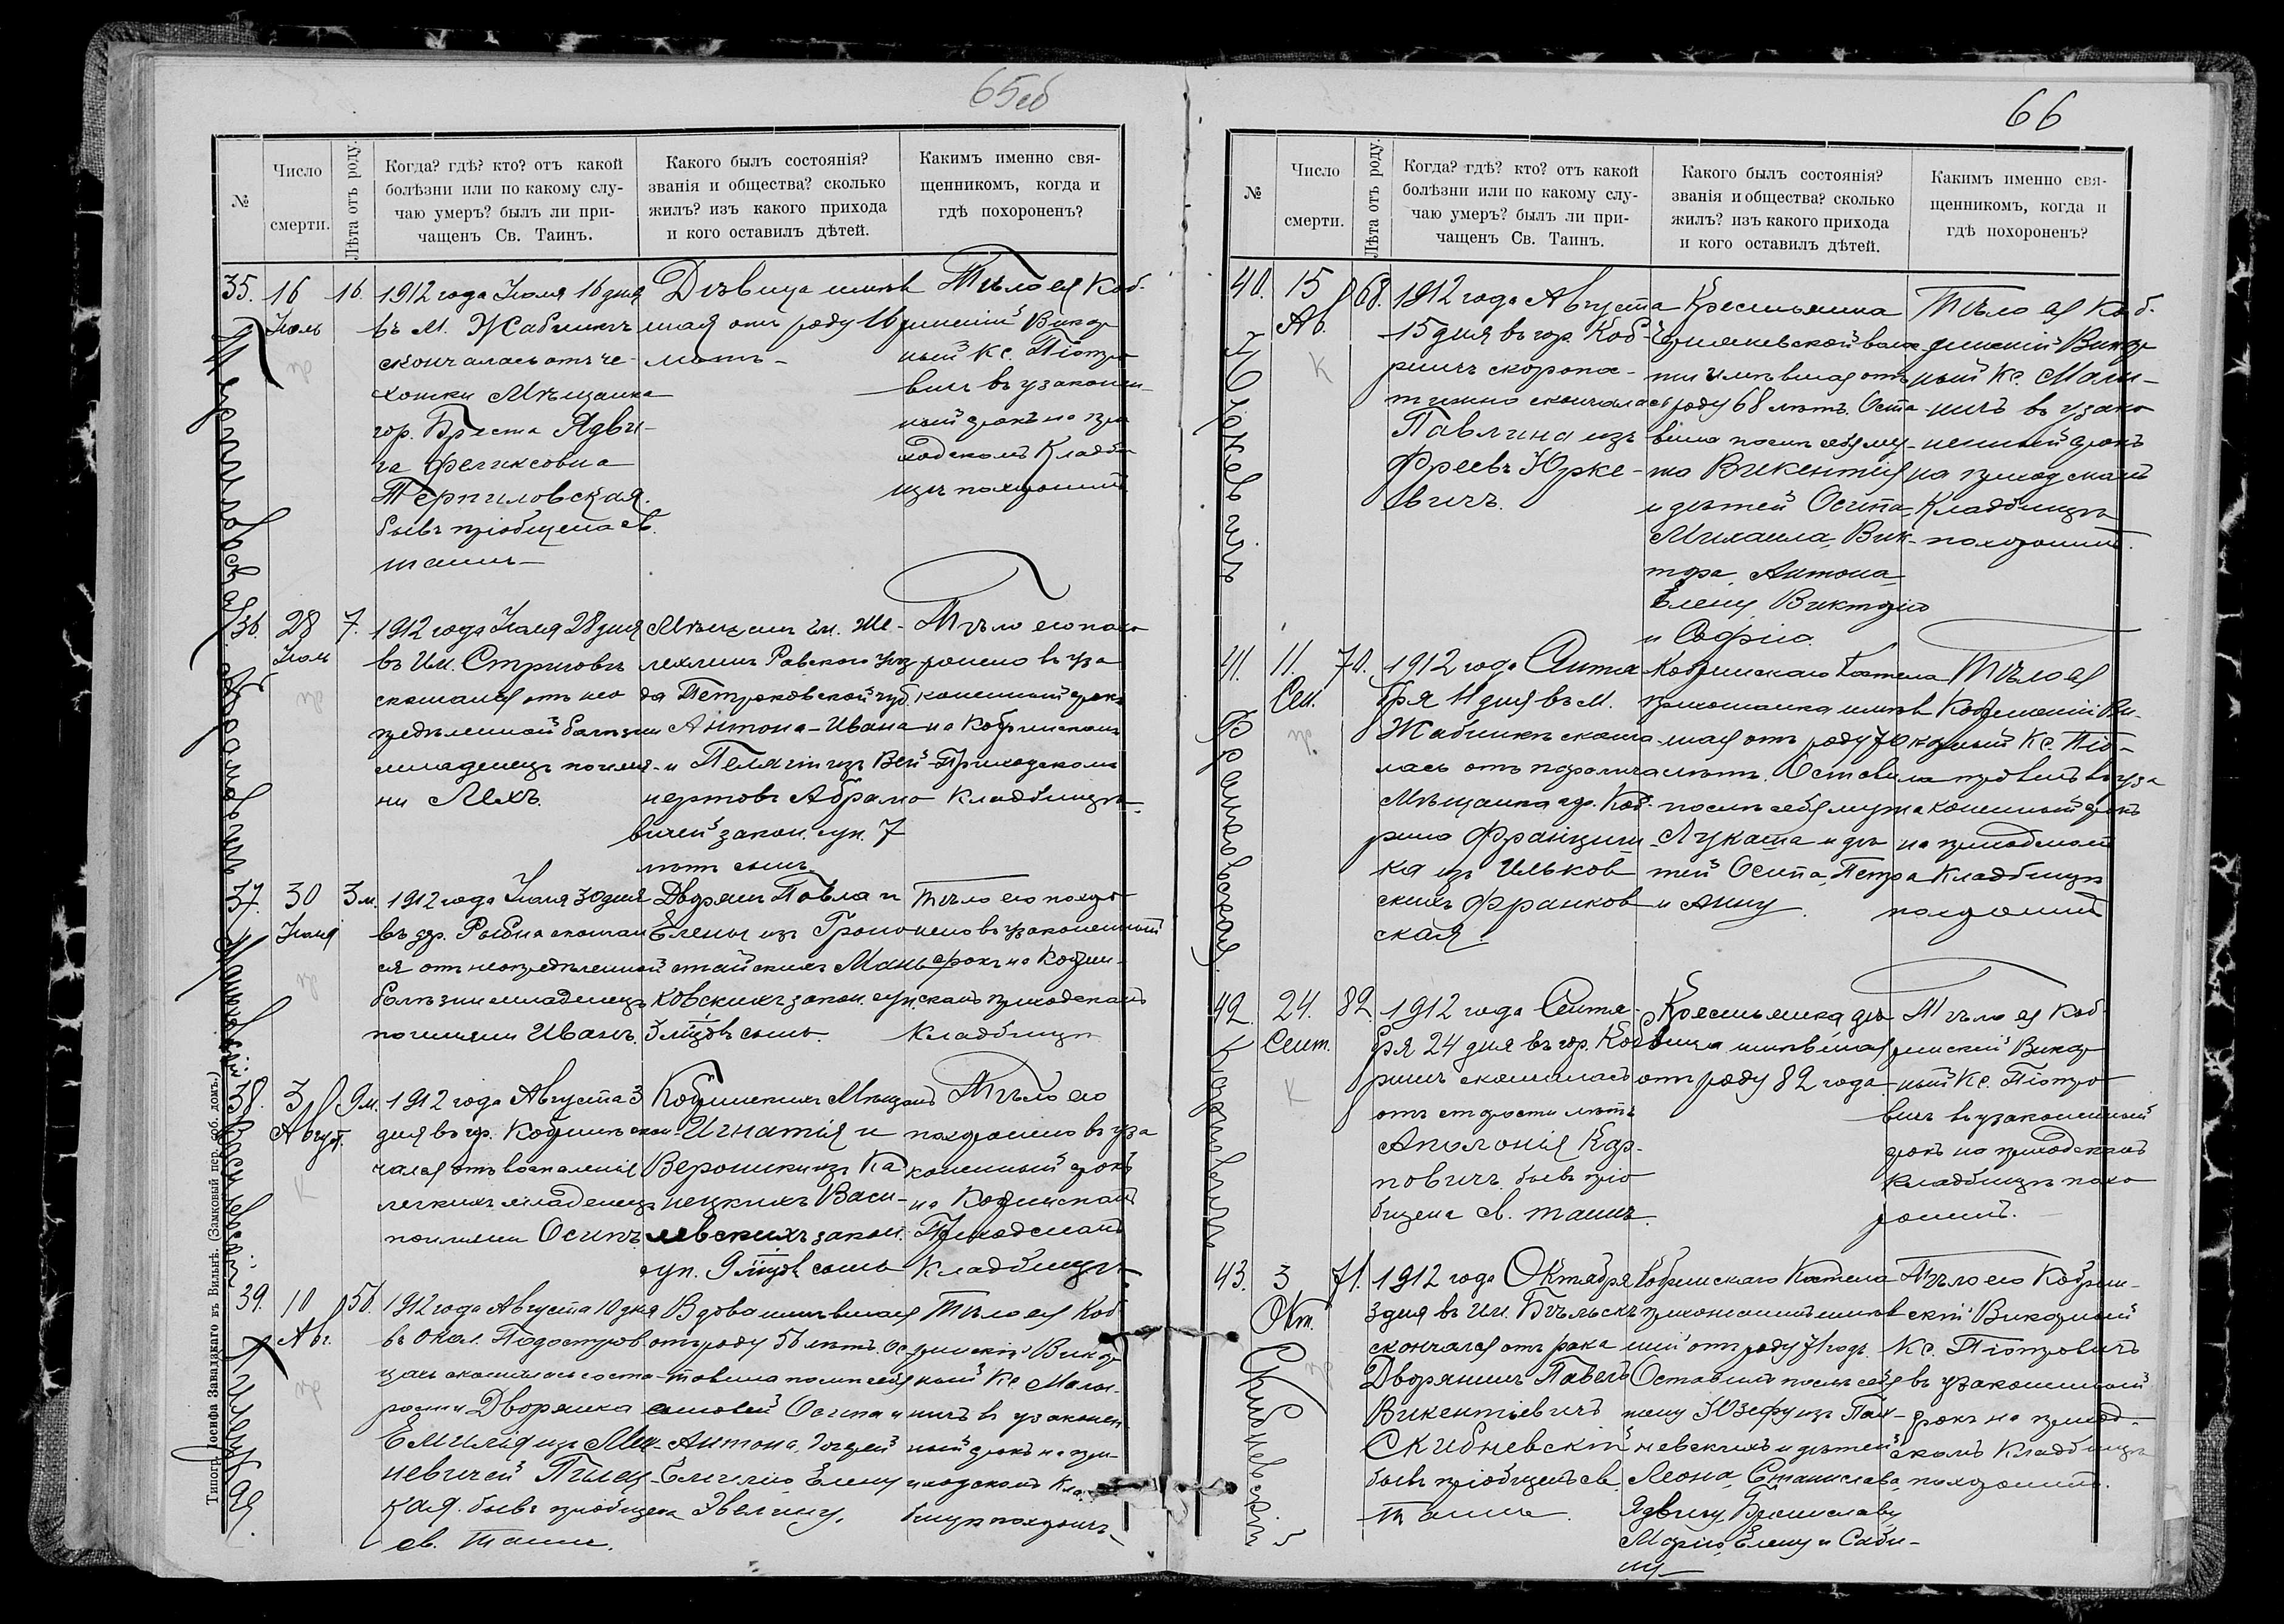 65об
№
Число
смерти.
Лѣта отъ роду.
Когда? гдѣ? кто? отъ какой
болѣзни или по какому слу-
чаю умеръ? былъ ли при-
чащенъ Св. Таинъ.
Какого былъ состоянія?
званія и общества? сколько
жилъ? изъ какого прихода
и кого оставилъ дѣтей.
Какимъ именно свя-
щенникомъ, когда и
гдѣ похороненъ?
Терпиловская
35.
16
Июль
16.
1912 года Июля 16 дня
въ м. Жабинкѣ
скончалась отъ ча-
хотки Мѣщанка
гор. Бреста Ядви-
га Феликсовна
Терпиловская.
бывъ пріобщена св.
таинъ
Дѣвица имѣв
шая отъ роду 16
лѣтъ
Тѣло ея Коб-
ринскій Викар
ный Кс. Піотро
вичъ въ узаконен-
ный срокъ на при
ходскомъ Кладби
щѣ похоронилъ
Абрамовичъ
36.
28
Июль
7.
1912 года Июля 28 дня
въ Им. Стригово
скончался отъ нео
предѣленной болѣзни
младенецъ по имя-
ни Лехъ.
Мѣщанъ гм.
Равского уѣз
да Петроковской губ.
Антона-Ивана
и Пелагіи изъ Вей-
нертовъ Абрамо
вичей закон. суп. 7
лѣтъ сынъ
Тѣло его похо
ронено въ уза
коненный срокъ
на Кобринскомъ
Приходскомъ
Кладбищѣ
Маньковскій
37.
30
Июля
3 м.
1912 года Июля 30 дня
въ дер. Рыбна скончал
ся отъ неопредѣленной
болѣзни младенецъ
по имяни Иванъ
Дворянъ Павла и
Елены изъ
Мань
ковскихъ закон. суп.
3 мѣсцъ сынъ.
Тѣло его похоро
нено въ узаконенный
срокъ на Кобрин-
скомъ приходскомъ
Кладбищѣ
Василевскій
38.
3
Август.
9 м.
1912 года Августа 3
дня въ гр. Кобринѣ скон-
чался отъ воспаленія
легкихъ младенецъ
по имяни Осипъ
Кобринскихъ Мѣщанъ
Игнатія и
Вероники изъ Ка
нецкихъ Васи-
левскихъ закон.
суп. 9 мѣсцъ сынъ
Тѣло его
похоронено въ уза
коненный срокъ
на Кобринскомъ
Приходскомъ
Кладбищѣ
Пилецкая.
39.
10
Авг.
56.
1912 года Августа 10 дня
въ окол. Подостров
цахъ скончалась отъ ста-
рости Дворянка
Емилія изъ
невичей Пилец
кая. бывъ пріобщена
св. таинъ.
Вдова имѣвшая
отъ роду 56 лѣтъ. Ос-
тавила послѣ себя
сыновей Осипа и
Антона, дочерей
Емилію Елену
Эвелину.
Тѣло ея Коб
ринскій Викар
ный Кс. Мали-
ничъ въ узаконен
ный срокъ на при-
ходскомъ Кла
бищѣ похорон.
Типогр. Іосифа Завадзкаго въ Вильнѣ. (Замковый пер. соб. домъ.)
66
№
Число
смерти.
Лѣта отъ роду.
Когда? гдѣ? кто? отъ какой
болѣзни или по какому слу-
чаю умеръ? былъ ли при-
чащенъ Св. Таинъ.
Какого былъ состоянія?
званія и общества? сколько
жилъ? изъ какого прихода
и кого оставилъ дѣтей.
Какимъ именно свя-
щенникомъ, когда и
гдѣ похороненъ?
Юркевичъ
40.
15
Ав.
68.
1912 года Августа
15 дня въ гор. Коб-
ринѣ скоропо-
стижно скончалась
Павлина изъ
Юрке-
вичъ.
Крестьянка
воло
сти имѣвшая отъ
роду 68 лѣтъ. Оста
вила послѣ себя му-
жа Викентія
и дѣтей Осипа
Михаила, Вик-
тора, Антона
Елену Викторію
и Софію.
Тѣло ея Коб.
ринскій Викар
ный Кс. Мали-
ничъ въ узако
ненный срокъ
на приходскомъ
Кладбищѣ
похоронилъ.
Франковская
41.
11.
Сен.
70.
1912 года Сентя
бря 11 дня въ м.
Жабинкѣ сконча
лась отъ паралича
Мѣщанка гор. Коб-
рина Францишь
ка изъ Ильков
скихъ Франков
ская.
Кобринскаго Костела
прихожанка имѣв
шая отъ роду 70
лѣтъ. Оставила
послѣ себя мужа
Лукаша и дѣ
тей Осипа, Петра
и Анну.
Тѣло ея
Кобринскій Ви-
карный Кс. Піо-
тровичъ въ уза
коненный срокъ
на приходскомъ
Кладбищѣ
похоронилъ
Карповичъ
42.
24.
Сент.
82.
1912 года Сентя-
бря 24 дня въ гор. Коб
ринѣ скончалась
отъ старости лѣтъ
Аполонія Кар-
повичъ. бывъ прiо
бщена св. таинъ.
Крестьянка дѣ
вица имѣвшая
отъ роду 82 года
Тѣло ея Коб-
ринскій Викар
ный Кс. Піотро
вичъ въ узаконенный
срокъ на приходскомъ
Кладбищѣ похо
ронилъ.
Скибневскій
43.
3
Окт.
71.
1912 года Октября
3 дня въ им. Бѣльскъ
скончался отъ рака
Дворянинъ Павелъ
Викентіевичъ
Скибневскій
бывъ пріобщенъ св.
таинъ.
Кобринскаго Костела
прихожанинъ имѣв
шій отъ роду 71 годъ
Оставилъ послѣ себя
жену Юзефу изъ Пач-
невскихъ и дѣтей
Леона, Станислава
Ядвигу, Брониславу
Марію, Елену и Саби-
ну
Тѣло его Кобрин-
скій Викарный
Кс. Піотровичъ
въ узаконенный
срокъ на приход-
скомъ Кладбищѣ
похоронилъ.